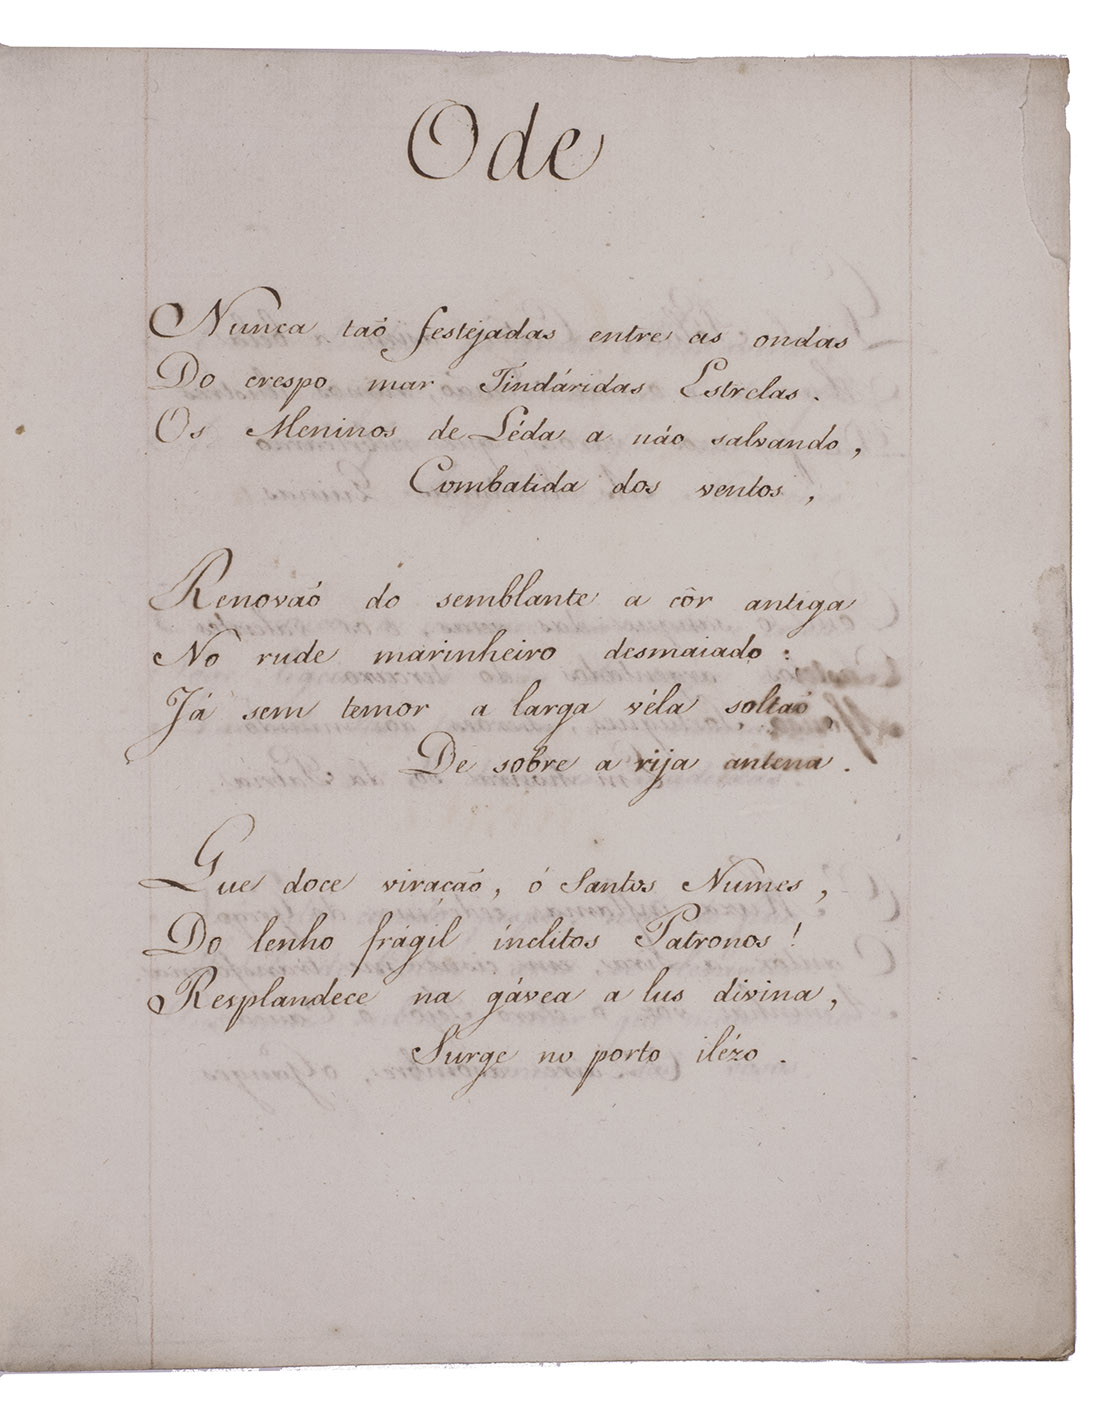 Ode
Nunca taõ festejadas entre as ondas
Do crespo mar Tindáridas Estrelas.
Os Meninos de Léda a náo salvando,
Combatida dos ventos,
Renovaõ do semblante a côr antiga
No rude marinheiro desmaiado:
Já sem temor a larga véla soltaõ,
De sobre a rija antena.
Que doce viraçaõ, ó Santos Numes,
Do lenho frágil ínclitos Patronos!
Resplandece na gávea a lus divina,
Surge no porto ilézo.